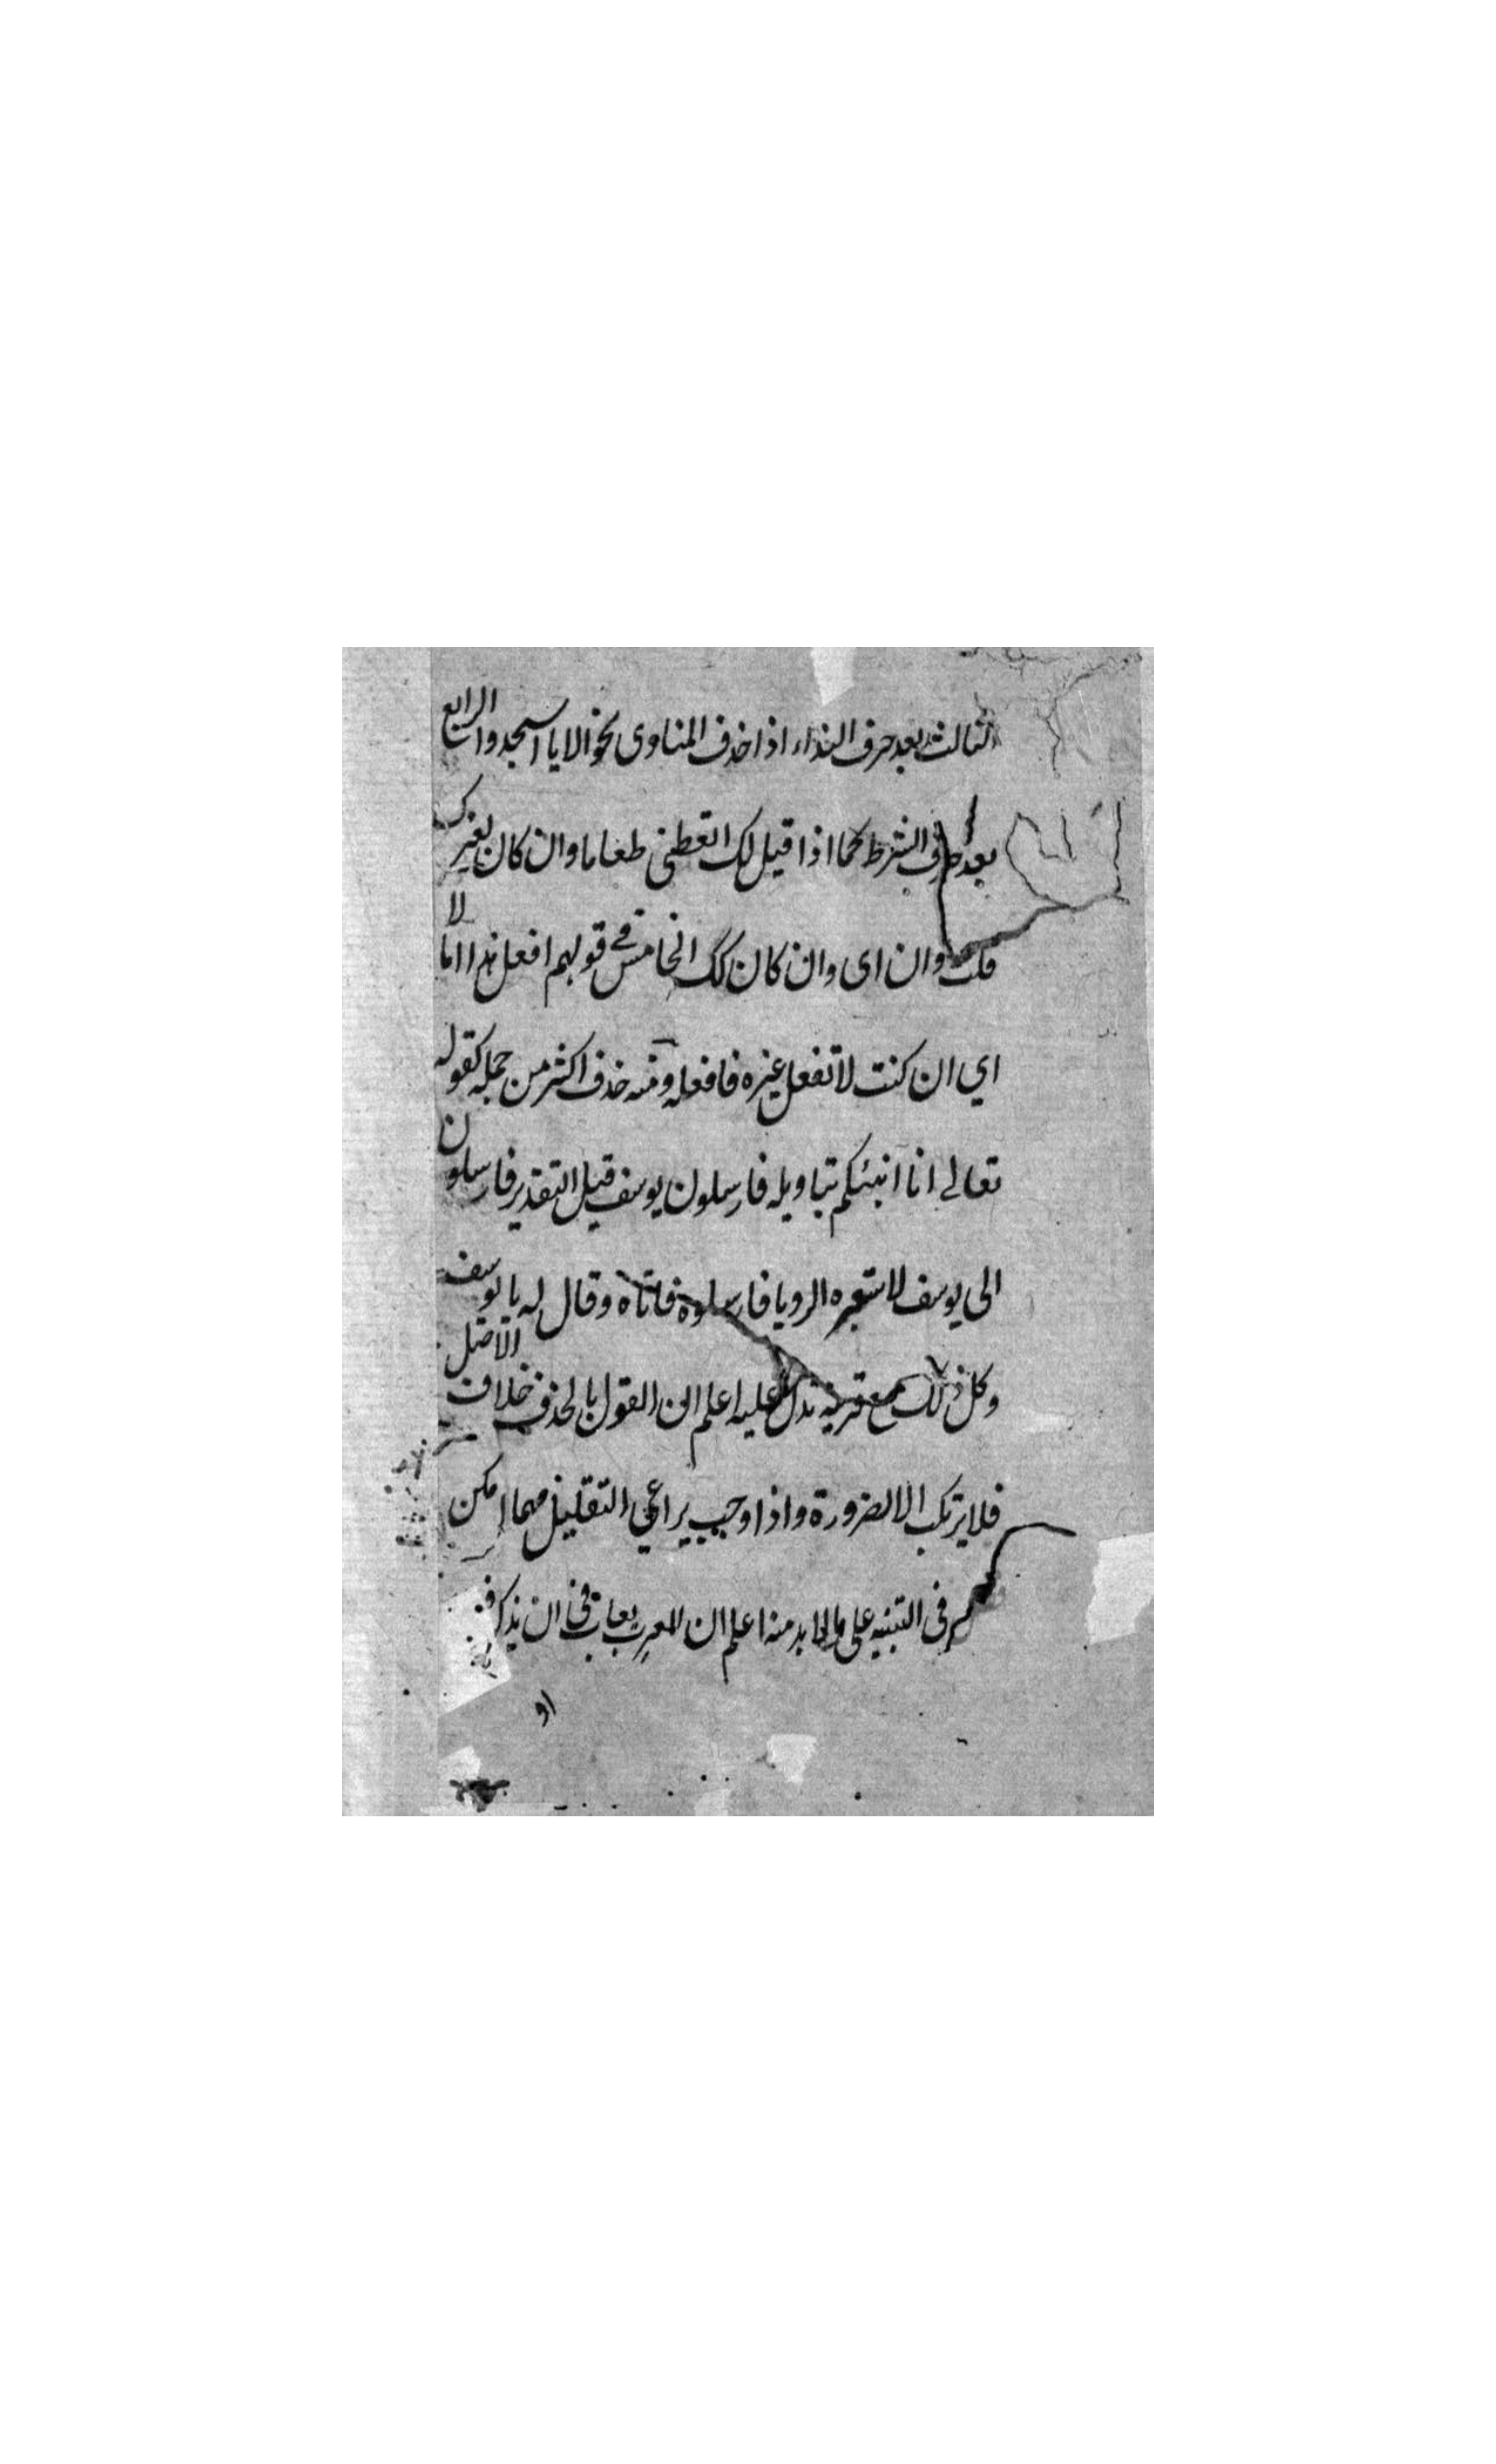 الثالث بعد حرف النداء اذا حذف المنادى نحو الا يا اسجدوا الرابع
بعد حرف الشرط كما اذا قيل لك اتعطنى طعاما وان كان بغيرك
قلت وان اى وان كان كك الخامس فى قولهم افعل هذا امالا
اي ان كنت لا تفعل غيره فافعله ومنه حذف اكثر من جملة كقوله
تعالى انا انبئكم بتاويله فارسلون يوسف قيل التقدير فارسلون
الى يوسف لاستعبره الرويا فارسلوه فاتاه وقال له يا يوسف
وكل ذلك مع قرينة تدل عليه اعلم ان القول بالحذف خلاف الاصل
فلا يرتكب الا لضرورة واذا وجب يراعى التقليل مهما امكن
فى التنبيه على ما لابد منه اعلم ان المعرب يعاب فى ان يذكر
او